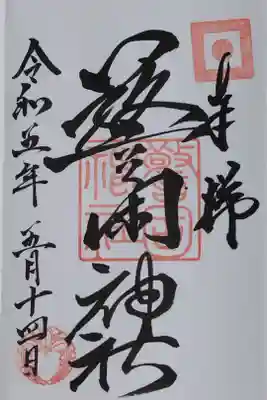 奉拝
警固神社
令和五年 五月十四日